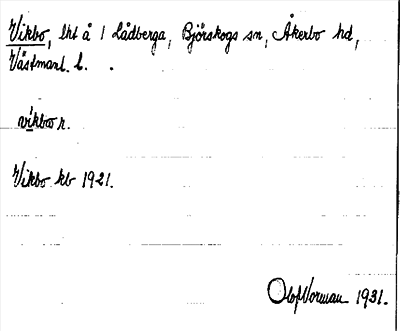 Vikbo, lht å 1 Lådberga, Björskogs sn, Åkerbo hd,
Västmanl. l.
vikbo r.
Vikbo kb 1921.
Olof Norman 1931.